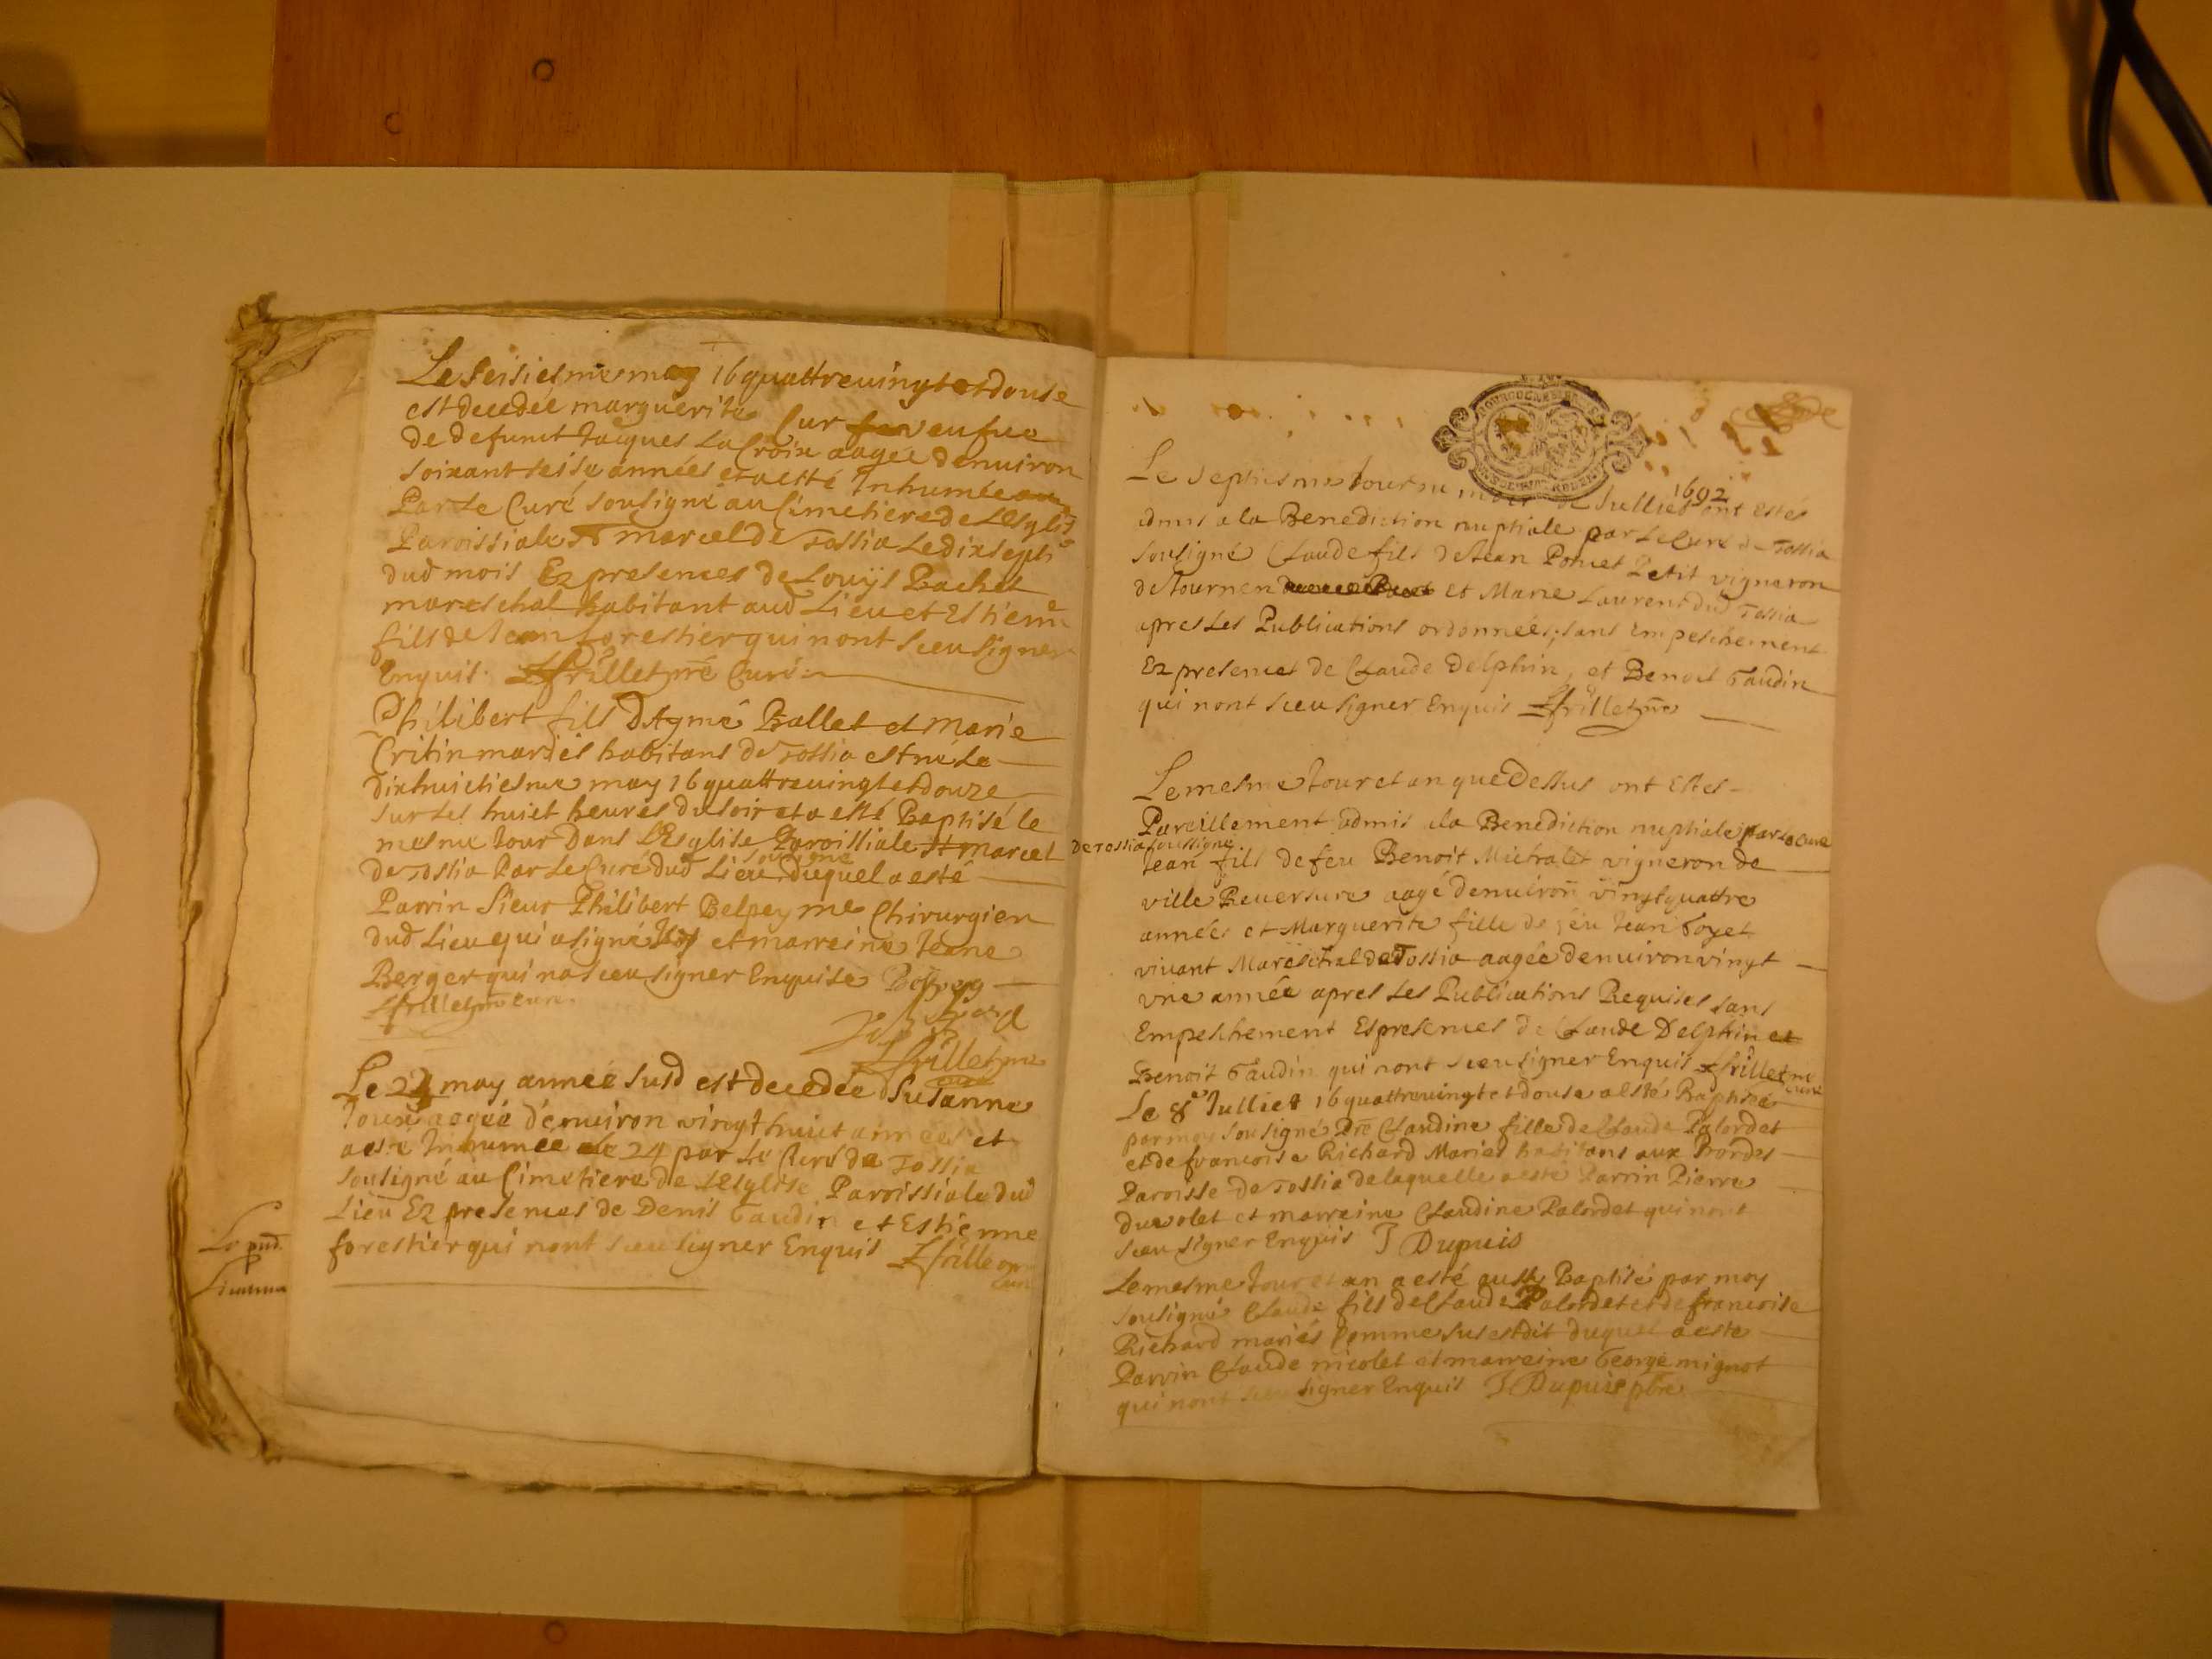 Le seisiesme may 16 quattrevingt et douse
est decedée marguerite Cur veufue
de defunct Jacques La Croix aagée denuiron
soixant seise années et a esté Inhumée
Par Le Curé sousigné au Cimetiere de LEsglise
Paroissiale St marcel de Tossia Le dixsepti
dud mois Ez presences de Louys Bachet
mareschal habitant aud Lieu et Estienne
fils de Jean forestier qui nont sceu signer
Enquis. Frillet pre Curé
Philibert fils DAymé Ballet et Marie
Critin mariés habitans de Tossia est né Le
dixhuictiesme may 16 quattrevingt et douze
sur Les huict heures du soir et a esté Baptisé le
mesme Jour Dans LEsglise Paroissiale St marcel
de Tossia Par Le Curé dud Lieu sousigné duquel a esté
Parrin Sieur Philibert Belpey me Chirurgien
dud Lieu qui a signé et marreine Jeane
Berger qui na sceu signer Enquise Belpey
Frillet pre Curé
Frillet pre
Curé
Le 23 may année susd est decedée Susanne
Joux aagée denuiron vingt huict années et
a esté Inhumée le 24 par Le Curé de Tossia
sousigné au Cimetiere de LEsglise Paroissiale dud
Lieu Ez presences de Denis Gaudin et Estienne
forestier qui nont sceu signer Enquis Frillet pre
Curé
1692
Le septiesme Jour du Julliet ont estés
admis a la Benediction nuptiale par Le Curé de Tossia
sousigné Claude fils de Jean Poncet Petit vigneron
de Journen et Marie Laurent dud Tossia
apres Les Publications ordonnées, sans Empeschement
Ez presences de Claude Delphin, et Benoit Gaudin
qui nont sceu signer Enquis Frillet pre
Le mesme Jour et an que Dessus ont Estes
Pareillement admis a la Benediction nuptiale par Le Curé
de Tossia soussigné
Jean fils de feu Benoit Michalet vigneron de
ville Reuersure aagé denuiron vingt quattre
années et Marguerite fille de feu Jean Goyet
vivant Mareschal de Tossia aagée denuiron vingt
vne année apres Les Publications Requises sans
Empeschement Es presences de Claude Delphin et
Benoit Gaudin qui nont sceu signer Enquis Frillet pre
Curé
Le 8e Julliet 16 quattrevingt et douse a esté Baptisée
par moy sousigné Pre Claudine fille de Claude Palordet
et de francoise Richard Mariés habitans aux Bordes
Paroisse de Tossia de laquelle a esté Parrin Pierre
Durolet et marreine Claudine Palordet qui nont
sceu signer Enquis J Dupuis
Le mesme Jour et an a esté aussy Baptisé par moy
sousigné Claude fils de Claude Palordet et de francoise
Richard mariés Comme sus est dit duquel a esté
Parrin Claude nicolet et marreine George mignot
qui nont sceu signer Enquis J Dupuis pbre